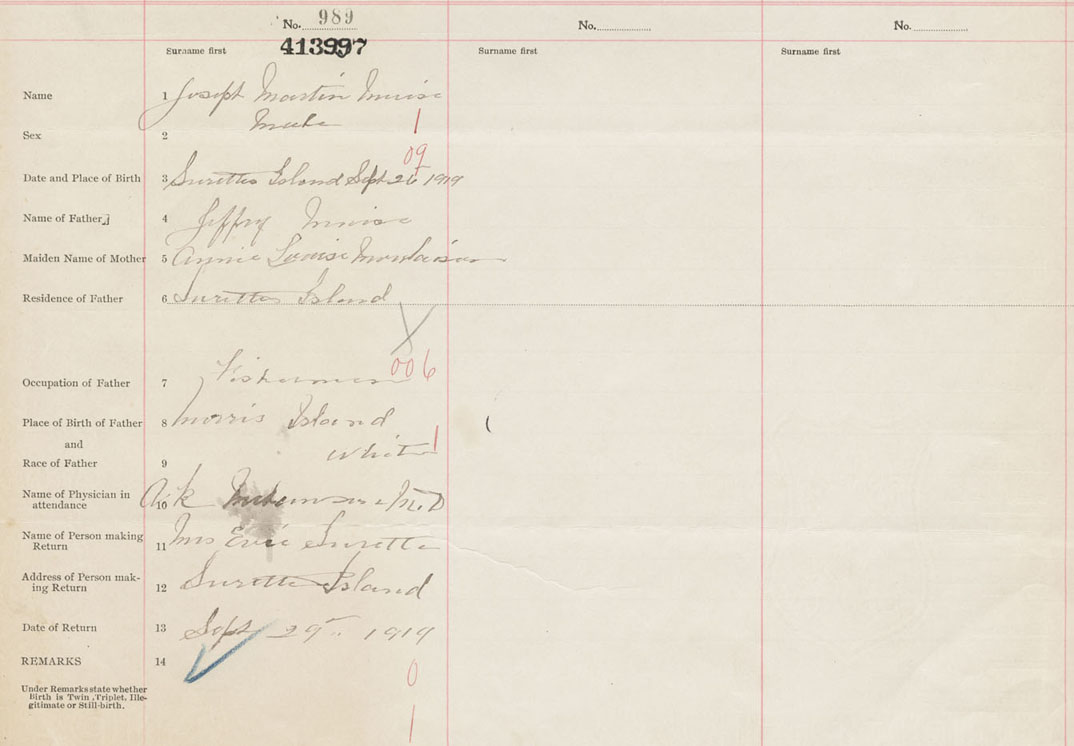 No. 989 No. No.
Surname first 413997 Surname first Surname first
Name 1 Joseph Martin Muise
Sex 2 Male 1
09
Date and Place of Birth 3 Surettes Island Sept 26 1919
Name of Father 4 Jeffry Muise
Maiden Name of Mother 5 Annie Louise
Residence of Father 6 Surettes Island
006
Occupation of Father 7 Fisherman
Place of Birth of Father 8 Morris Island
and
Race of Father 9 White 1
Name of Physician in
attendance 10 M.D
Name of Person making
Return 11 Mrs Evie Surette
Address of Person mak-
ing Return 12 Surette Island
Date of Return 13 Sept 29th 1919
REMARKS 14
0
Under Remarks state whether
Birth is Twin, Triplet, Ille-
gitimate or Still-birth.
1